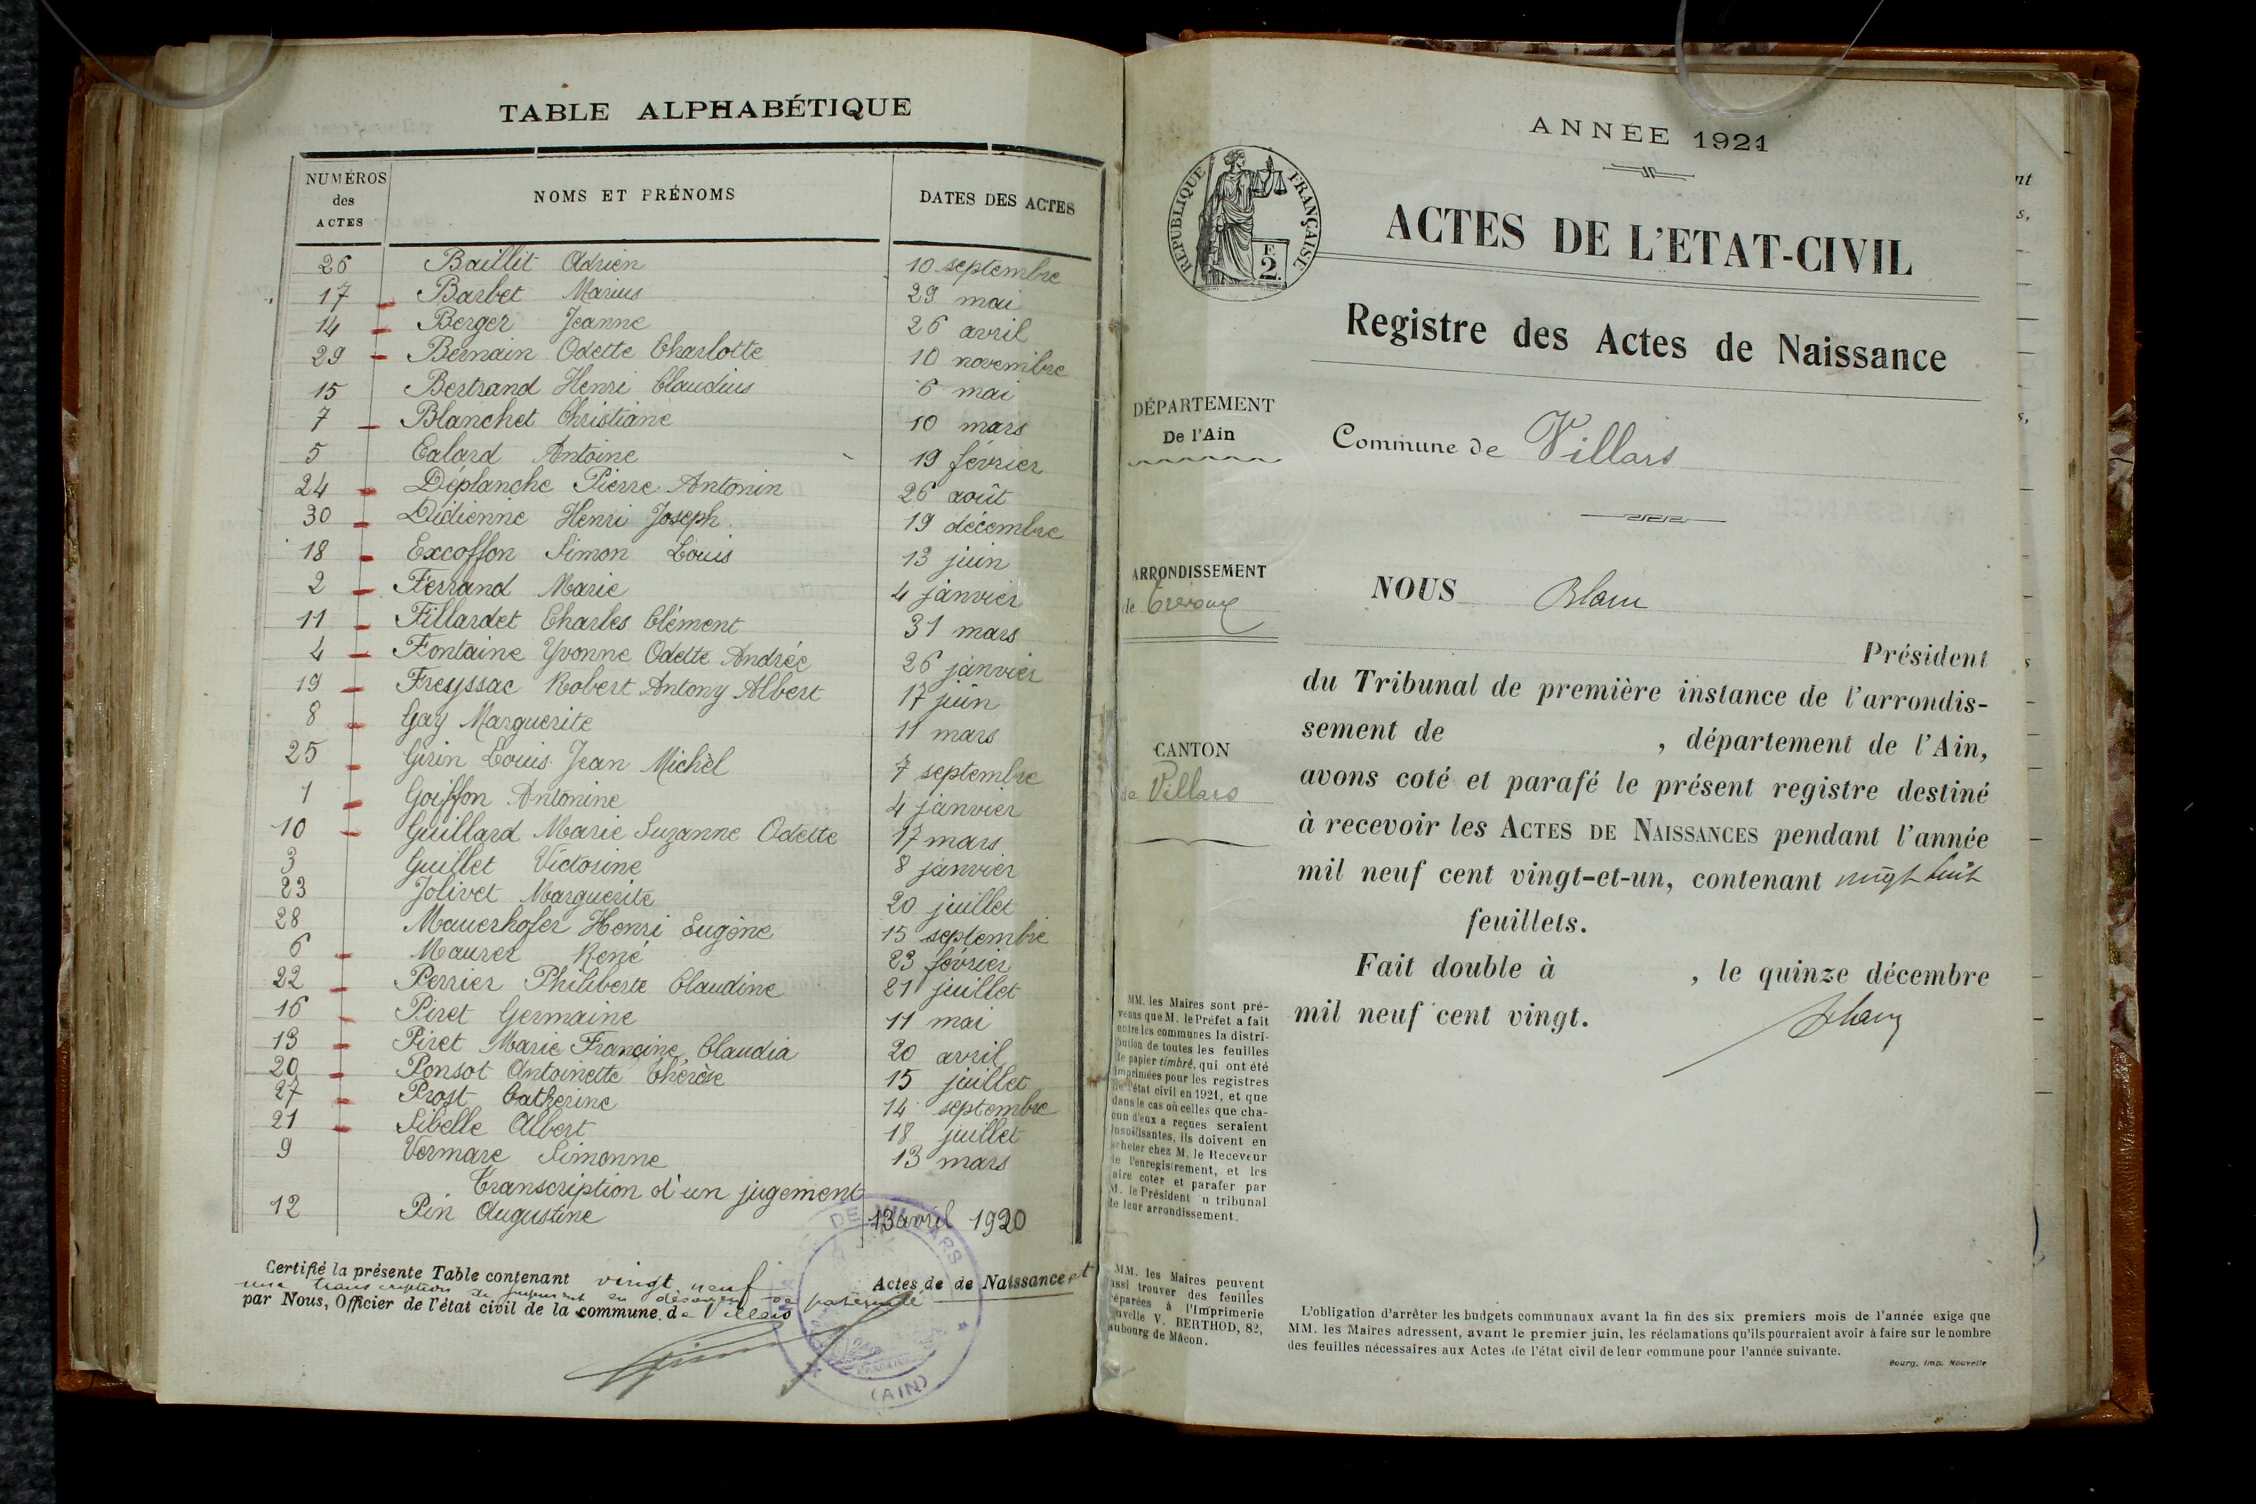 TABLE ALPHABÉTIQUE
NUMÉROS des ACTES NOMS ET PRÉNOMS DATES DES ACTES
26 Baillit Adrien 10 septembre
17 Barbet Marius 29 mai
14 Berger Jeanne 26 avril
29 Bernain Odette Charlotte 10 novembre
15 Bertrand Henri Claudius 6 mai
7 Blanchet Christiane 10 mars
5 Calard Antoine 19 février
24 Déplanche Pierre Antonin 26 août
30 Didienne Henri Joseph 19 décembre
18 Excoffon Simon Louis 13 juin
2 Ferrand Marie 4 janvier
11 Fillardet Charles Clément 31 mars
4 Fontaine Yvonne Odette Andrée 26 janvier
19 Freyssac Robert Antony Albert 17 juin
8 Gay Marguerite 11 mars
25 Girin Louis Jean Michel 7 septembre
1 Goiffon Antonine 4 janvier
10 Guillard Marie Suzanne Odette 17 mars
3 Guillet Victorine 8 janvier
23 Jolivet Marguerite 20 juillet
28 Mauerhofer Henri Eugène 15 septembre
6 Maurer René 23 février
22 Perrier Philiberte Claudine 21 juillet
16 Piret Germaine 11 mai
13 Piret Marie Francine Claudia 20 avril
20 Ponsot Antoinette Thérèse 15 juillet
27 Prost Catherine 14 septembre
21 Sibelle Albert 18 juillet
9 Vermare Simonne 13 mars
Transcription d'un jugement
12 Pin Augustine 13 avril 1920
Certifié la présente Table contenant vingt neuf Actes de de Naissance et
une transcription de jugement en désaveu de paternité
par Nous, Officier de l'état civil de la commune de Villars
DE VILLARS
(AIN)
ANNÉE 1921
RÉPUBLIQUE FRANÇAISE
F
2.
ACTES DE L'ETAT-CIVIL
Registre des Actes de Naissance
DÉPARTEMENT
De l'Ain
Commune de Villars
ARRONDISSEMENT
de Trévoux
NOUS Blanc
Président
du Tribunal de première instance de l'arrondis-
sement de , département de l'Ain,
CANTON
de Villars
avons coté et parafé le présent registre destiné
à recevoir les ACTES DE NAISSANCES pendant l'année
mil neuf cent vingt-et-un, contenant vingt huit
feuillets.
Fait double à , le quinze décembre
mil neuf cent vingt.
Blanc
MM. les Maires sont pré-
venus que M. le Préfet a fait
entre les communes la distri-
bution de toutes les feuilles
de papier timbré, qui ont été
imprimées pour les registres
de l'état civil en 1921, et que
dans le cas où celles que cha-
cun d'eux a reçues seraient
insuffisantes, ils doivent en
acheter chez M. le Receveur
de l'enregistrement, et les
faire coter et parafer par
M. le Président u tribunal
de leur arrondissement.
MM. les Maires peuvent
aussi trouver des feuilles
réparées à l'Imprimerie
Nouvelle V. BERTHOD, 82,
faubourg de Mâcon.
L'obligation d'arrêter les budgets communaux avant la fin des six premiers mois de l'année exige que
MM. les Maires adressent, avant le premier juin, les réclamations qu'ils pourraient avoir à faire sur le nombre
des feuilles nécessaires aux Actes de l'état civil de leur commune pour l'année suivante.
Bourg, Imp. Nouvelle